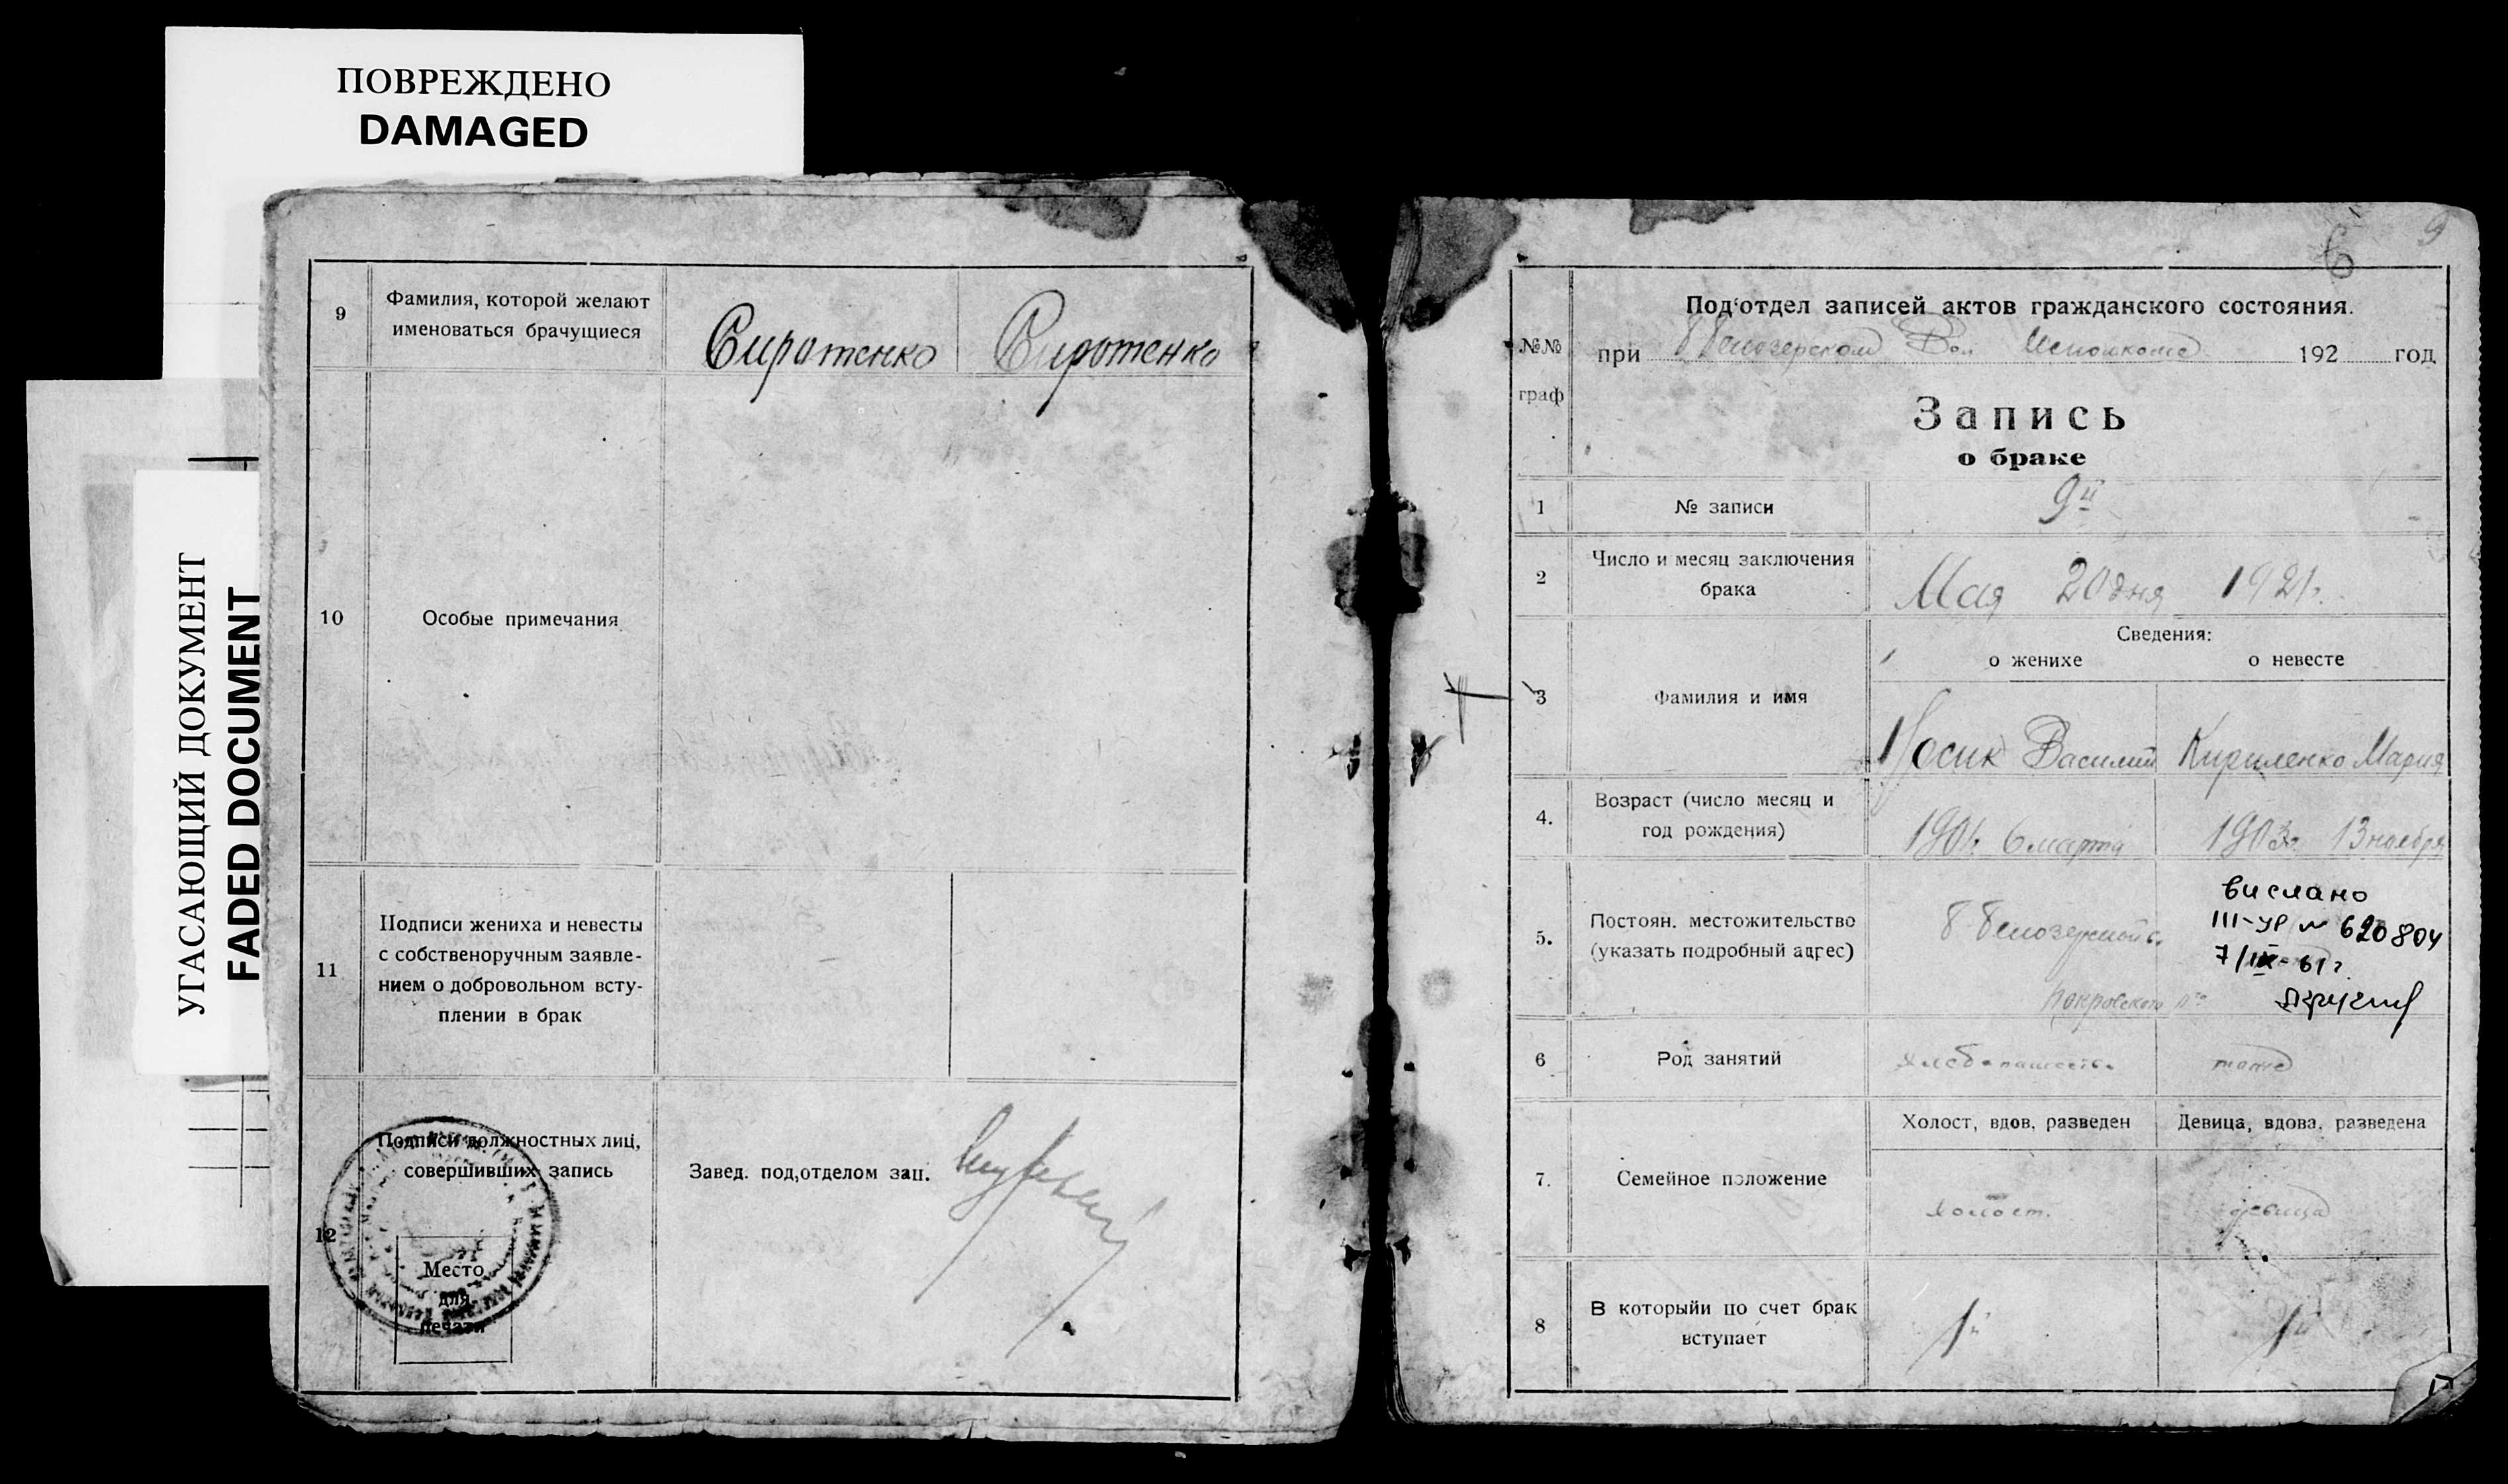 ПОВРЕЖДЕНО
DAMAGED
УГАСАЮЩИЙ ДОКУМЕНТ
FADED DOCUMENT
9
Фамилия, которой желают
именоваться брачущиеся
Сиротенко
Сиротенко
10
Особые примечания
11
Подписи жениха и невесты
с собственоручным заявле-
нием о добровольном всту-
плении в брак
12
Подписи должностных лиц,
совершивших запись
Завед. под,отделом зап.
Место
для
печати
6
9
№№
граф
Под'отдел записей актов гражданского состояния.
при Вол Исполкоме 192 год
Запись
о браке
1
№ записи
9й
2
Число и месяц заключения
брака
Мая 20 дня 1921г.
Сведения:
о женихе
о невесте
3
Фамилия и имя
Носик Василий
Кириленко Мария
4.
Возраст (число месяц и
год рождения)
6 марта
1903г. 13 ноября
5.
Постоян. местожительство
(указать подробный адрес)
Покровского
вислано
III-УР № 620804
7/IX-61г.
6
Род занятий
хлебопашество
тоже
7.
Семейное положение
Холост, вдов, разведен
Девица, вдова, разведена
холост.
девица
8
В которыйи по счет брак
вступает
1й
1й